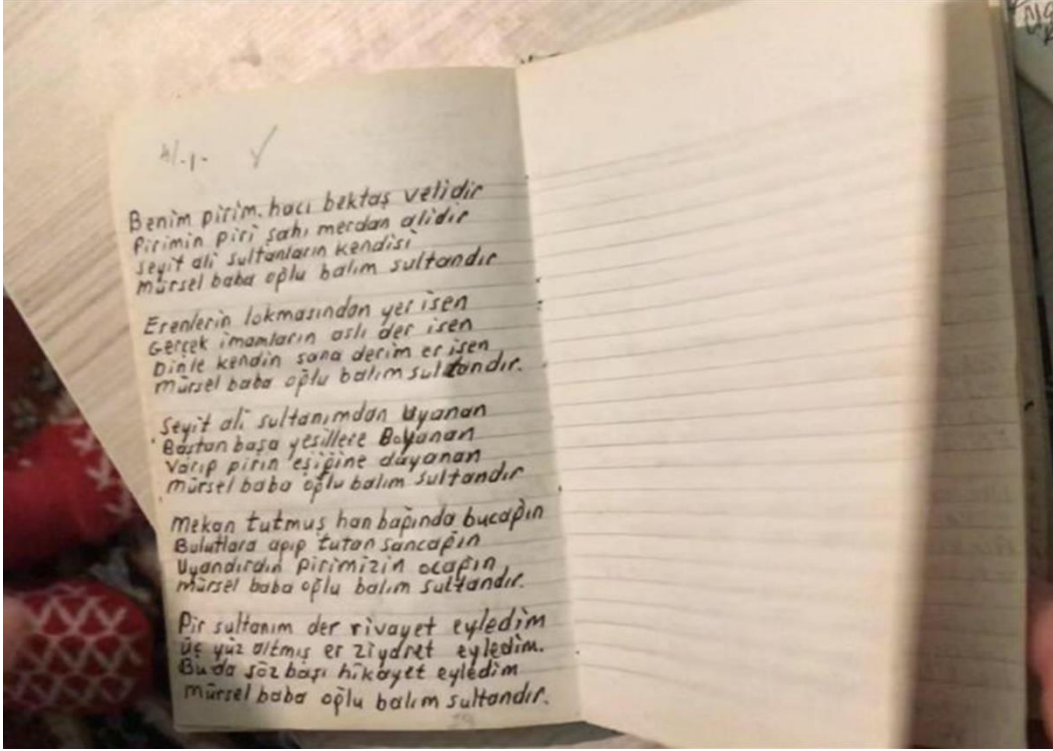 4/-1-
Benim pirim. hacı bektaş velidir
Pirimin piri şahı merdan alidir
seyit ali sultanların kendisi
mürsel baba oğlu balım sultandır
Erenlerin lokmasından yer isen
Gerçek imamların aslı der isen
Dinle kendin sana derim er isen
mürsel baba oğlu balım sultandır.
Seyit ali sultanımdan uyanan
Baştan başa yeşillere Boyanan
Varıp pirin eşiğine dayanan
mürsel baba oğlu balım sultandır
Mekan tutmuş han bağında bucağın
Bulutlara ağıp tutan sancağın
Uyandırdın pirimizin ocağın
mürsel baba oğlu balım sultandır.
Pir sultanım der rivayet eyledim
üç yüz altmış er ziyaret eyledim.
Buda söz başı hikayet eyledim
mürsel baba oğlu balım sultandır.